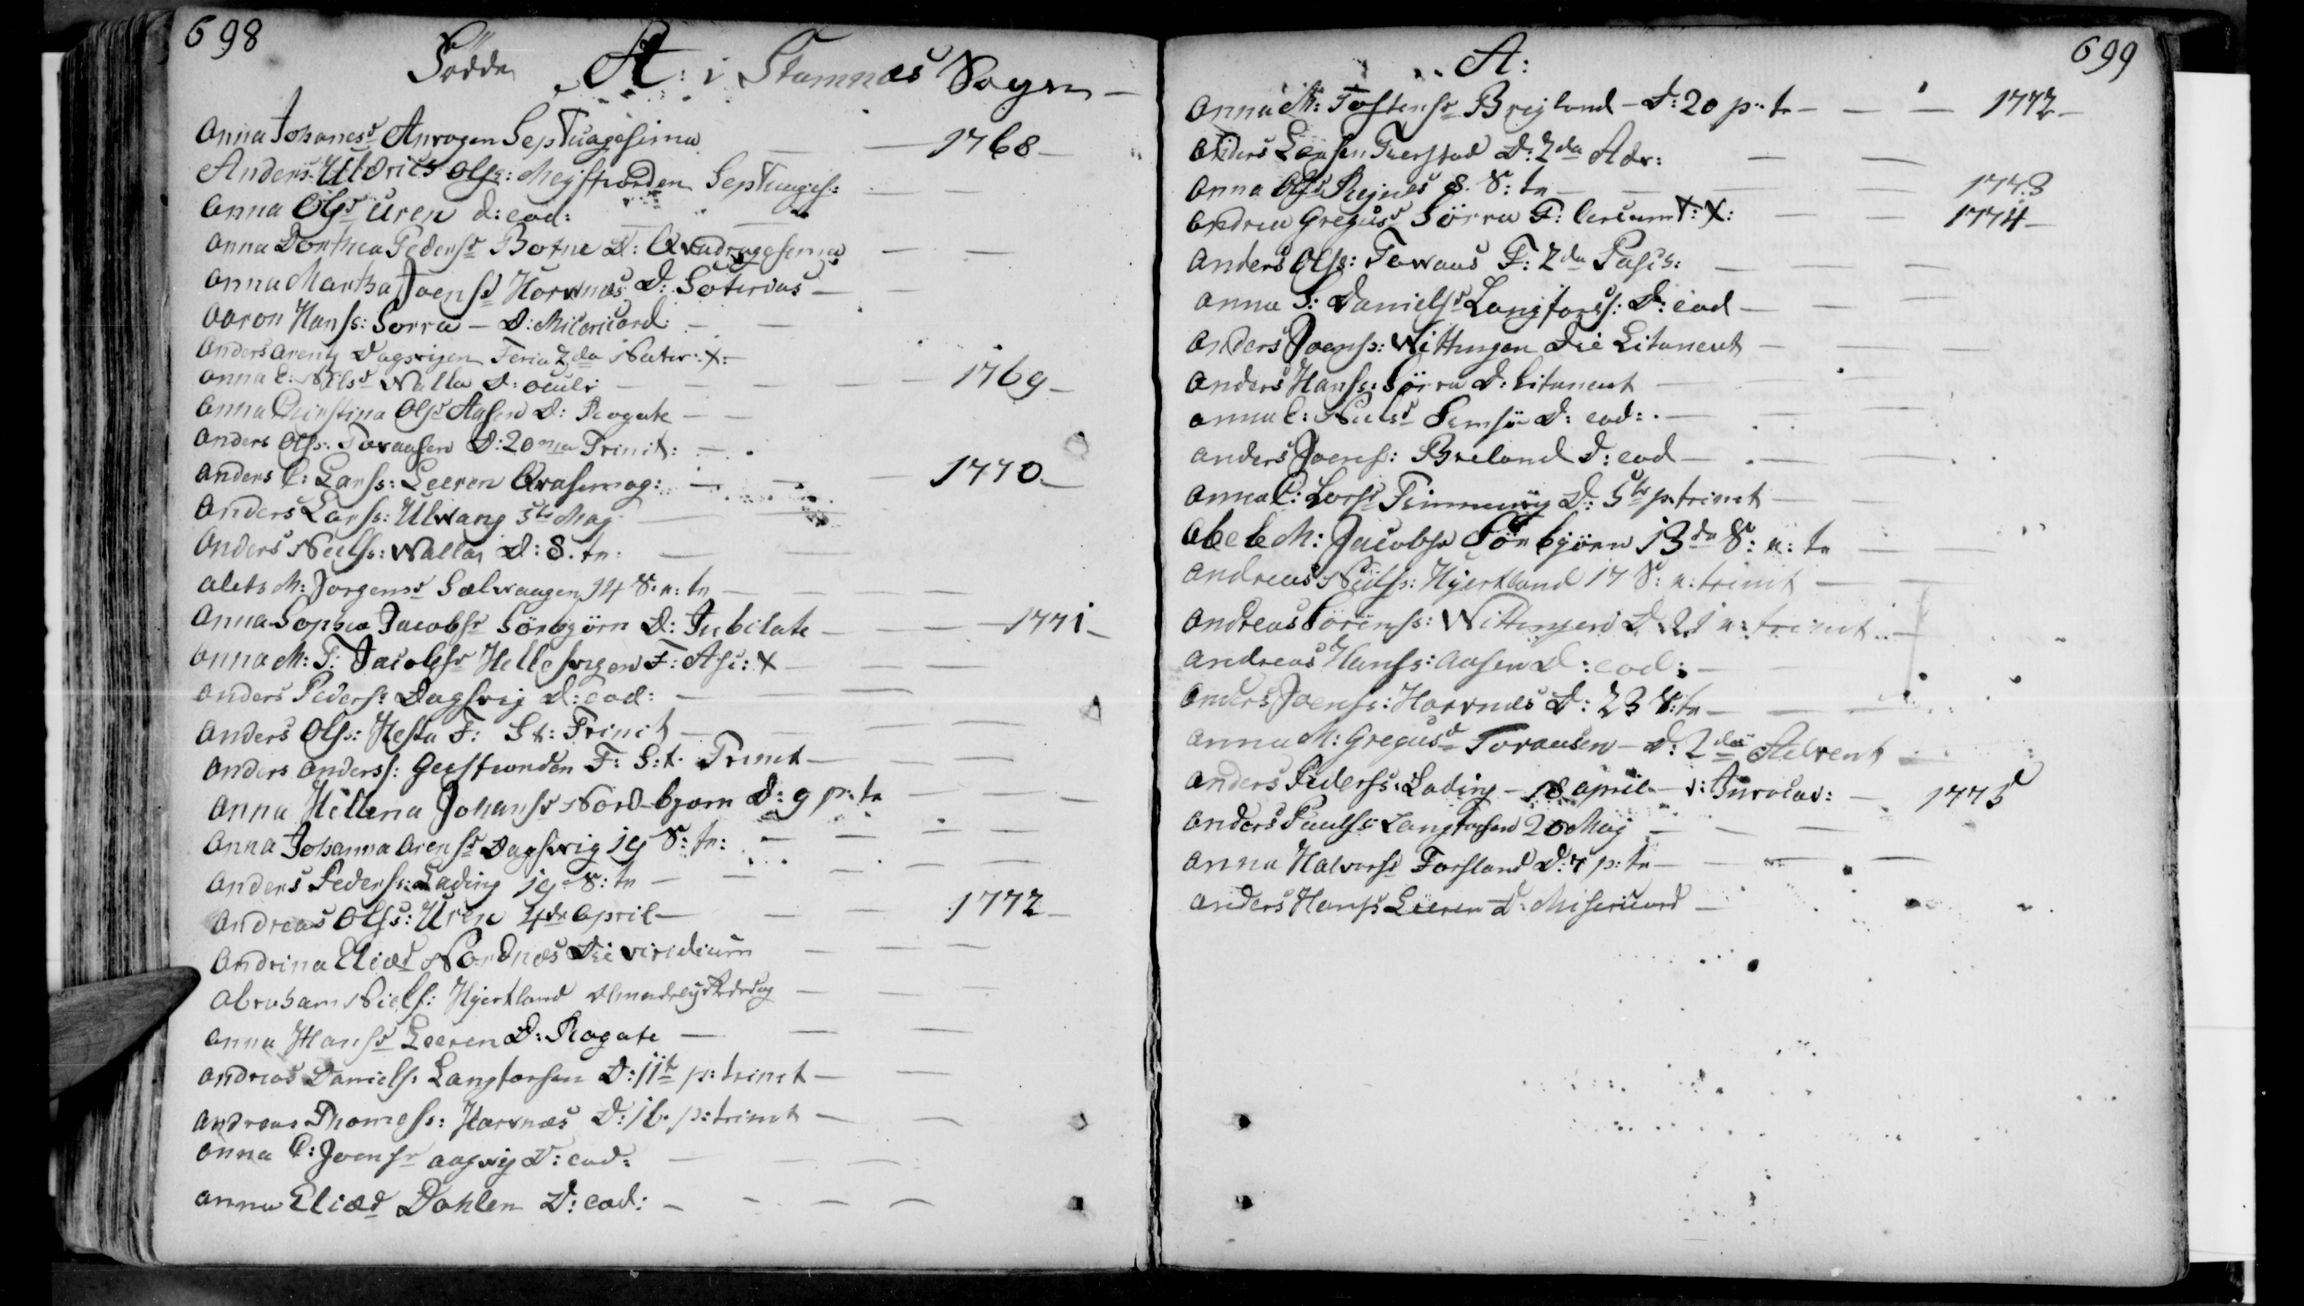 698
Födde A: i Stamnæs Sogn
Anna Johanesd Anvogen Septuagesima 1768
Anders Uldrics Ols: Mejsfiorden Septuages:
Anna Olsd Uren d: eod:
Anna Dorthea Pedersd Botne D: Qvadragesima
Anna Martha Joensd Horvnæs D: Soterias
Aaron Hans: Sorra D: Misericord:
Anders Arentz Dagsvigen Feria 2da Nativ: X:
Anna C: Nilsd Walla D: oculi 1769
Anna Christina Olsd Aasen D: Rogate
Anders Ols: Toraasen D: 20ma Trinit:
Anders C: Lars: Leeren Qvasimog: 1770
Anders Lars: Ulvang 5te Maj
Anders Niels: Walla D: 8. tr:
Alets M: Jorgensd Sælvaagen 14 S. a: tr
Anna Sophia Jacobsd Sörbjörn D: Jubilate 1771
Anna M: T: Jacobsd Hellesvigen F: Asc: X
Anders Peders: Dagsvig d: eod:
Anders Ols: Hesta F: St: Trinit
Anders Anders: Geitfiorden F: S:t: Trinit
Anna Hellena Johansd Nordbjorn D: 9 p: tr
Anna Johanna Arensd Dagsvig 19 S: tr:
Anders Peders: Lading 19 S: tr
Andreas Ols: Uren 4de April 1772
Andrina Eliæd Nordnæs Die viridium
Abraham Niels: Hjertland
Anna Hansd Leeren D: Rogate
Andreas Daniels: Langforsen D: 11te p: trinit
Andreas Thomes: Harvnæs D: 16. p: trinit
Anna C: Joensd aagvig D: eod:
Anna Eliæd Dahlen D: eod:
699
A:
Anna M: Tostensd Brejland D: 20 p: tr 1772
Anders Lensen Fierstad D: 2da Adv:
Anna Olsd Rejnes 8. S: tr 1773
Andrea Gregusd Sörra F: Circum: X: 1774
Anders Ols: Toraas F: 2da Pasch:
Anna S: Danielsd Langfors: D: eod
Anders Joens: Wittingen Die Litaneut
Anders Hans: Sörra D: Litaneut
Anna C: Nielsd Semsöe D: eod:
Anders Joens: Breland D: eod
Anna C: Larsd Finnevig D: 5te p: trinit
Abel M: Jacobsd Sörbjörn 13da S: a: tr
Andreas Niels: Hjertland 17 S: a: trinit
Andreas Sörens: Wittingen D 21 a: trinit
Andreas Hans: Aasen D: eod:
Anders Joens: Horvnæs D: 23 S: tr
Anna M: Gregusd Toraasen D: 2da Advent
Anders Peders: Lading 18 April 1775
Anders Pauls: Langforsen 20 Maj
Anna Halvorsd Forsland D: 4 p: tr
Anders Hans Leeren D: Misericord